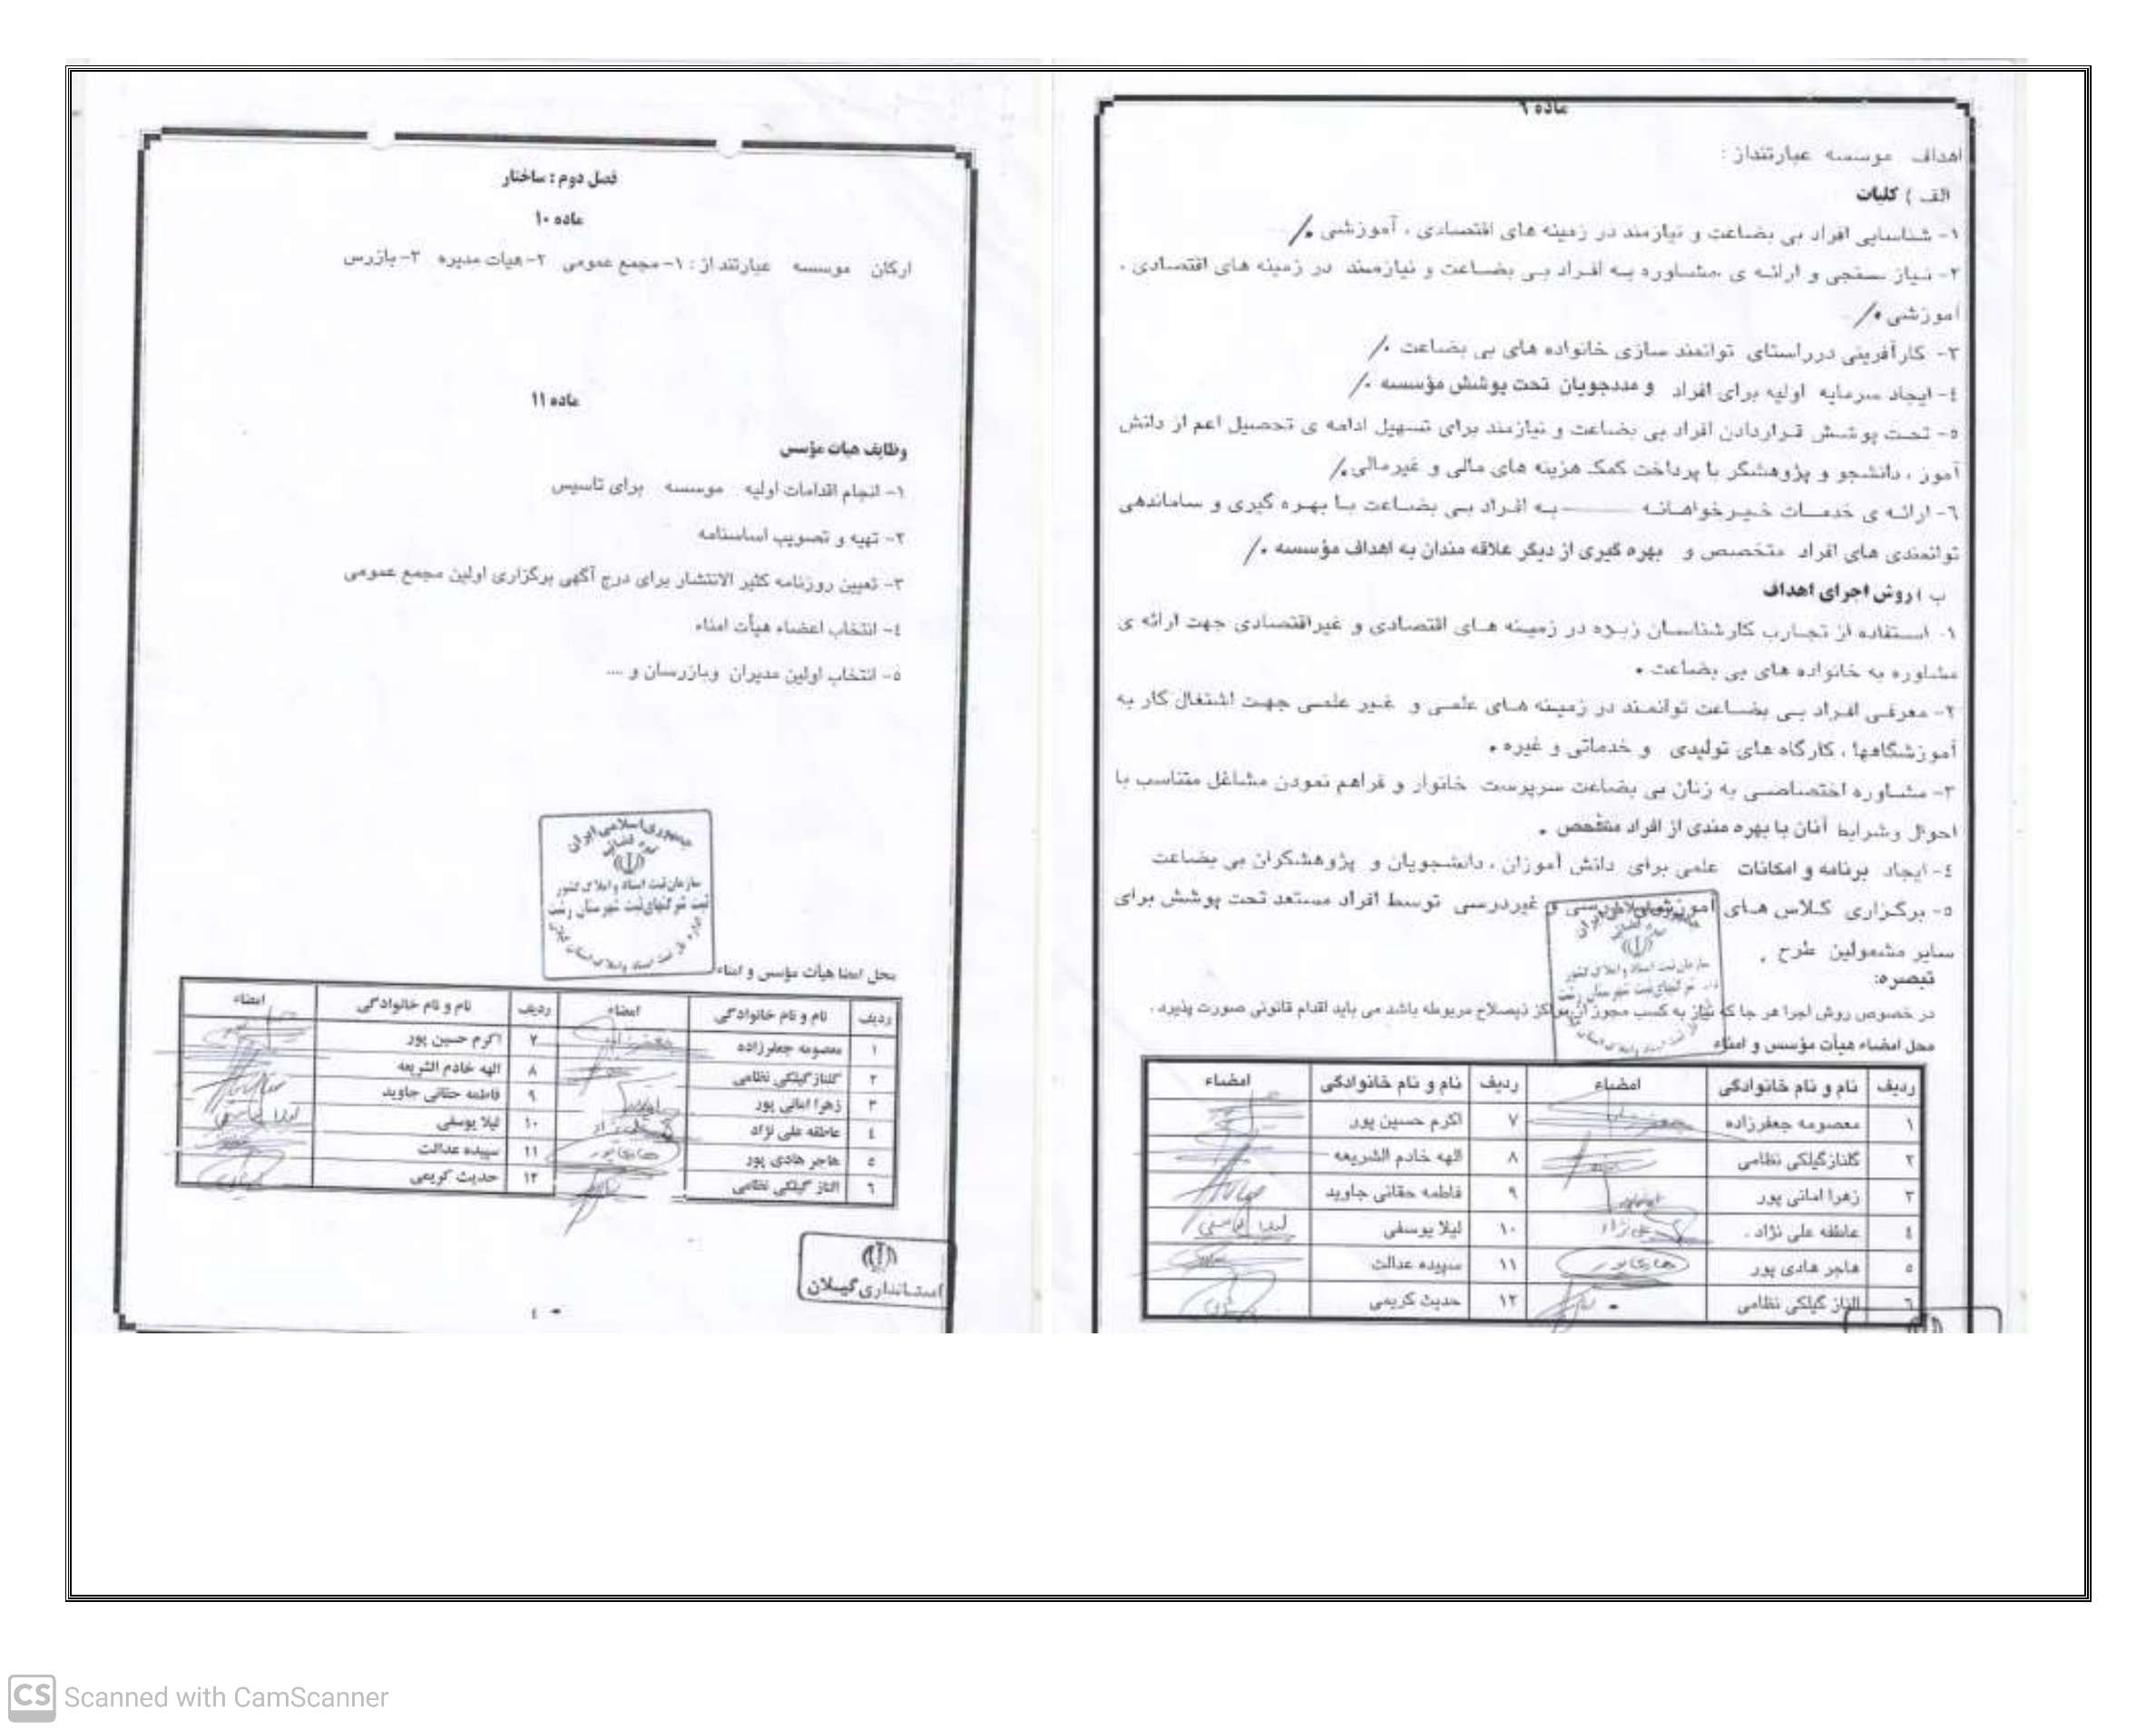 ماده ۹
اهداف موسسه عبارتنداز :
الف ) کلیات
۱- شناسایی افراد بی بضاعت و نیازمند در زمینه های اقتصادی ، آموزشی ./
۲- نیاز سنجی و ارائه ی مشاوره به افراد بی بضاعت و نیازمند در زمینه های اقتصادی ،
آموزشی ./
۳- کارآفرینی درراستای توانمند سازی خانواده های بی بضاعت ./
٤- ایجاد سرمایه اولیه برای افراد و مددجویان تحت پوشش مؤسسه ./
٥- تحت پوشش قراردادن افراد بی بضاعت و نیازمند برای تسهیل ادامه ی تحصیل اعم از دانش
آموز ، دانشجو و پژوهشگر با پرداخت کمک هزینه های مالی و غیرمالی./
٦- ارائه ی خدمات خیرخواهانه به افراد بی بضاعت با بهره گیری و ساماندهی
توانمندی های افراد متخصص و بهره گیری از دیگر علاقه مندان به اهداف مؤسسه ./
ب ) روش اجرای اهداف
۱- استفاده از تجارب کارشناسان زبره در زمینه های اقتصادی و غیراقتصادی جهت ارائه ی
مشاوره به خانواده های بی بضاعت .
۲- معرفی افراد بی بضاعت توانمند در زمینه های علمی و غیر علمی جهت اشتغال کار به
آموزشگاهها ، کارگاه های تولیدی و خدماتی و غیره .
۳- مشاوره اختصاصی به زنان بی بضاعت سرپرست خانوار و فراهم نمودن مشاغل متناسب با
احوال وشرایط آنان با بهره مندی از افراد .
٤- ایجاد برنامه و امکانات علمی برای دانش آموزان ، دانشجویان و پژوهشگران بی بضاعت
٥- برگزاری کلاس های آموزشهای درسی و غیردرسی توسط افراد مستعد تحت پوشش برای
سایر مشمولین طرح .
تبصره:
در خصوص روش اجرا هر جا که نیاز به کسب مجوز از مراکز ذیصلاح مربوطه باشد می باید اقدام قانونی صورت پذیرد .
محل امضاء هیأت مؤسس و امناء
ردیف نام و نام خانوادگی امضاء ردیف نام و نام خانوادگی امضاء
۱ معصومه جعفرزاده ۷ اکرم حسین پور
۲ گلنازگیلکی نظامی ۸ الهه خادم الشریعه
۳ زهرا امانی پور ۹ فاطمه حقانی جاوید
٤ عاطفه علی نژاد . ۱۰ لیلا یوسفی
٥ هاجر هادی پور هادی پور ۱۱ سپیده عدالت
٦ الناز گیلکی نظامی ۱۲ حدیث کریمی
فصل دوم : ساختار
ماده ۱۰
ارکان موسسه عبارتند از : ۱- مجمع عمومی ۲- هیات مدیره ۳- بازرس
ماده ۱۱
وظایف هیات مؤسس
۱- انجام اقدامات اولیه موسسه برای تاسیس
۲- تهیه و تصویب اساسنامه
۳- تعیین روزنامه کثیر الانتشار برای درج آگهی برگزاری اولین مجمع عمومی
٤- انتخاب اعضاء هیأت امناء
٥- انتخاب اولین مدیران وبازرسان و ....
جمهوری اسلامی ایران
قوه قضائیه
سازمان ثبت اسناد و املاک کشور
ثبت شرکتهای ثبت شهرستان رشت
محل امضا هیأت مؤسس و امناء
ردیف نام و نام خانوادگی امضاء ردیف نام و نام خانوادگی امضاء
۱ معصومه جعفرزاده ۷ اکرم حسین پور
۲ گلناز گیلکی نظامی ۸ الهه خادم الشریعه
۳ زهرا امانی پور ۹ فاطمه حقانی جاوید
٤ عاطفه علی نژاد ۱۰ لیلا یوسفی
٥ هاجر هادی پور هادی پور ۱۱ سپیده عدالت
٦ الناز گیلکی نظامی ۱۲ حدیث کریمی
استانداری گیلان
٤ -
CS Scanned with CamScanner